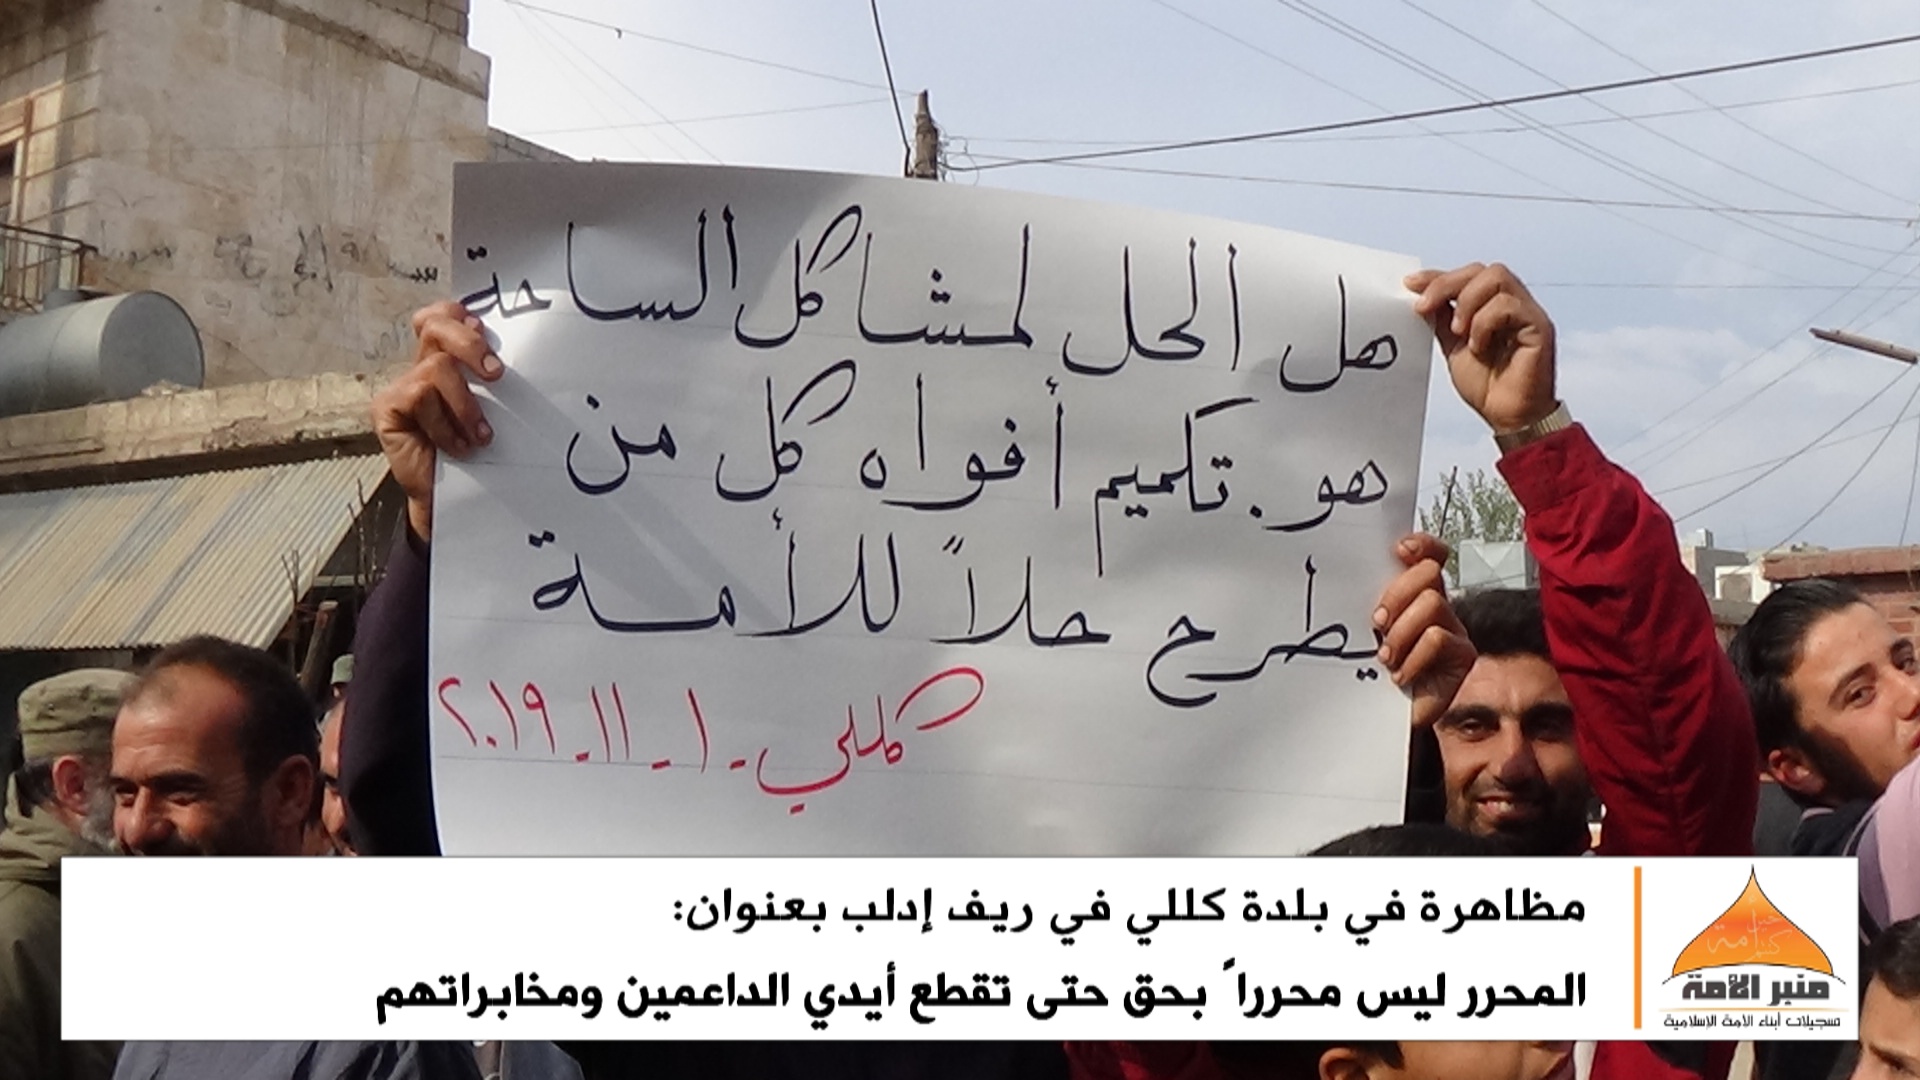 هل الحل لمشاكل الساحة
هو . تكميم أفواه كل من
يطرح حلاً للأمة
كللي - ١ - ١١ - ٢٠١٩
مظاهرة في بلدة كللي في ريف إدلب بعنوان:
المحرر ليس محرراً بحق حتى تقطع أيدي الداعمين ومخابراتهم
منبر الأمة
تسجيلات أبناء الأمة الإسلامية